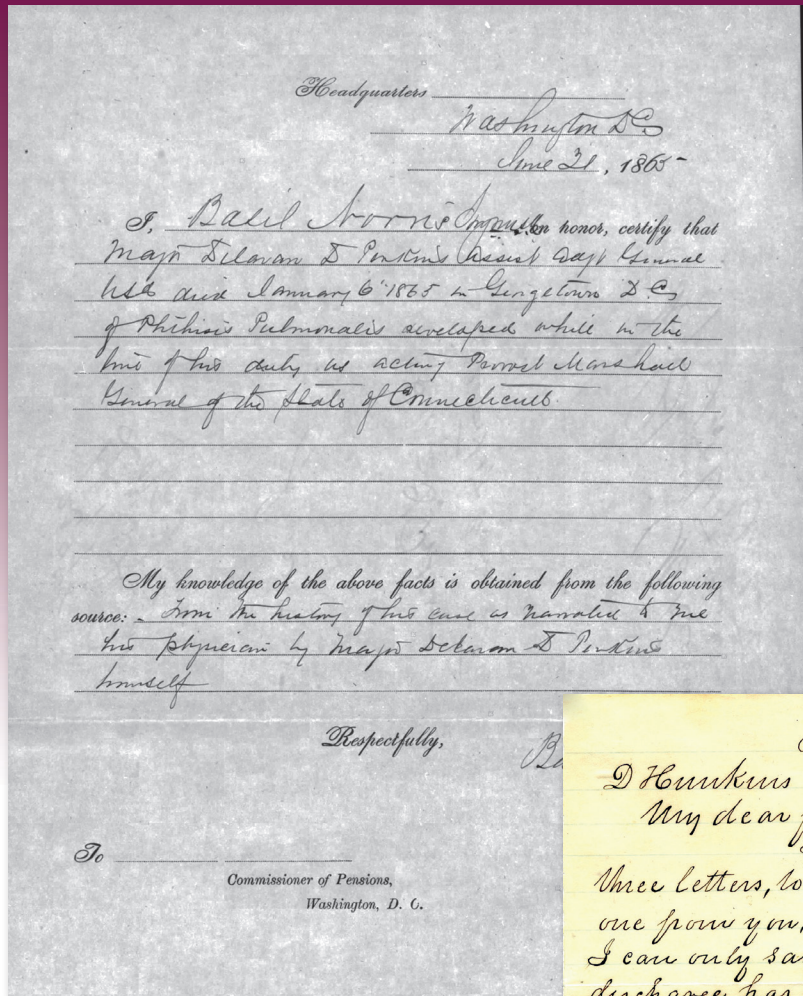 Headquarters
Washington DC
June 21, 1865
I, Basil Norris Surgeon USA on honor, certify that
Major Delavan D Perkins Assist Adjt General
USA died January 6" 1865 in Georgetown DC
of Phthisis Pulmonalis developed while in the
line of his duty as acting Provost Marshall
General of the State of Connecticut
My knowledge of the above facts is obtained from the following
source: - From the history of his case as narrated to me
his physician by Major Delavan D Perkins
himself
Respectfully,
Ba
To
Commissioner of Pensions,
Washington, D. C.
D Hunkins
My dear
three letters, to
one from you,
I can only sa
discharge has